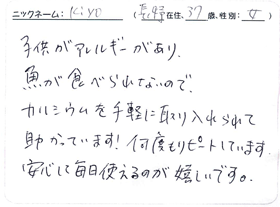 ニックネーム：kiyo （長野在住、37歳、性別：女）
子供がアレルギーがあり、
魚が食べられないので、
カルシウムを手軽に取り入れられて
助かっています！何度もリピートしています。
安心して毎日使えるのが嬉しいです。